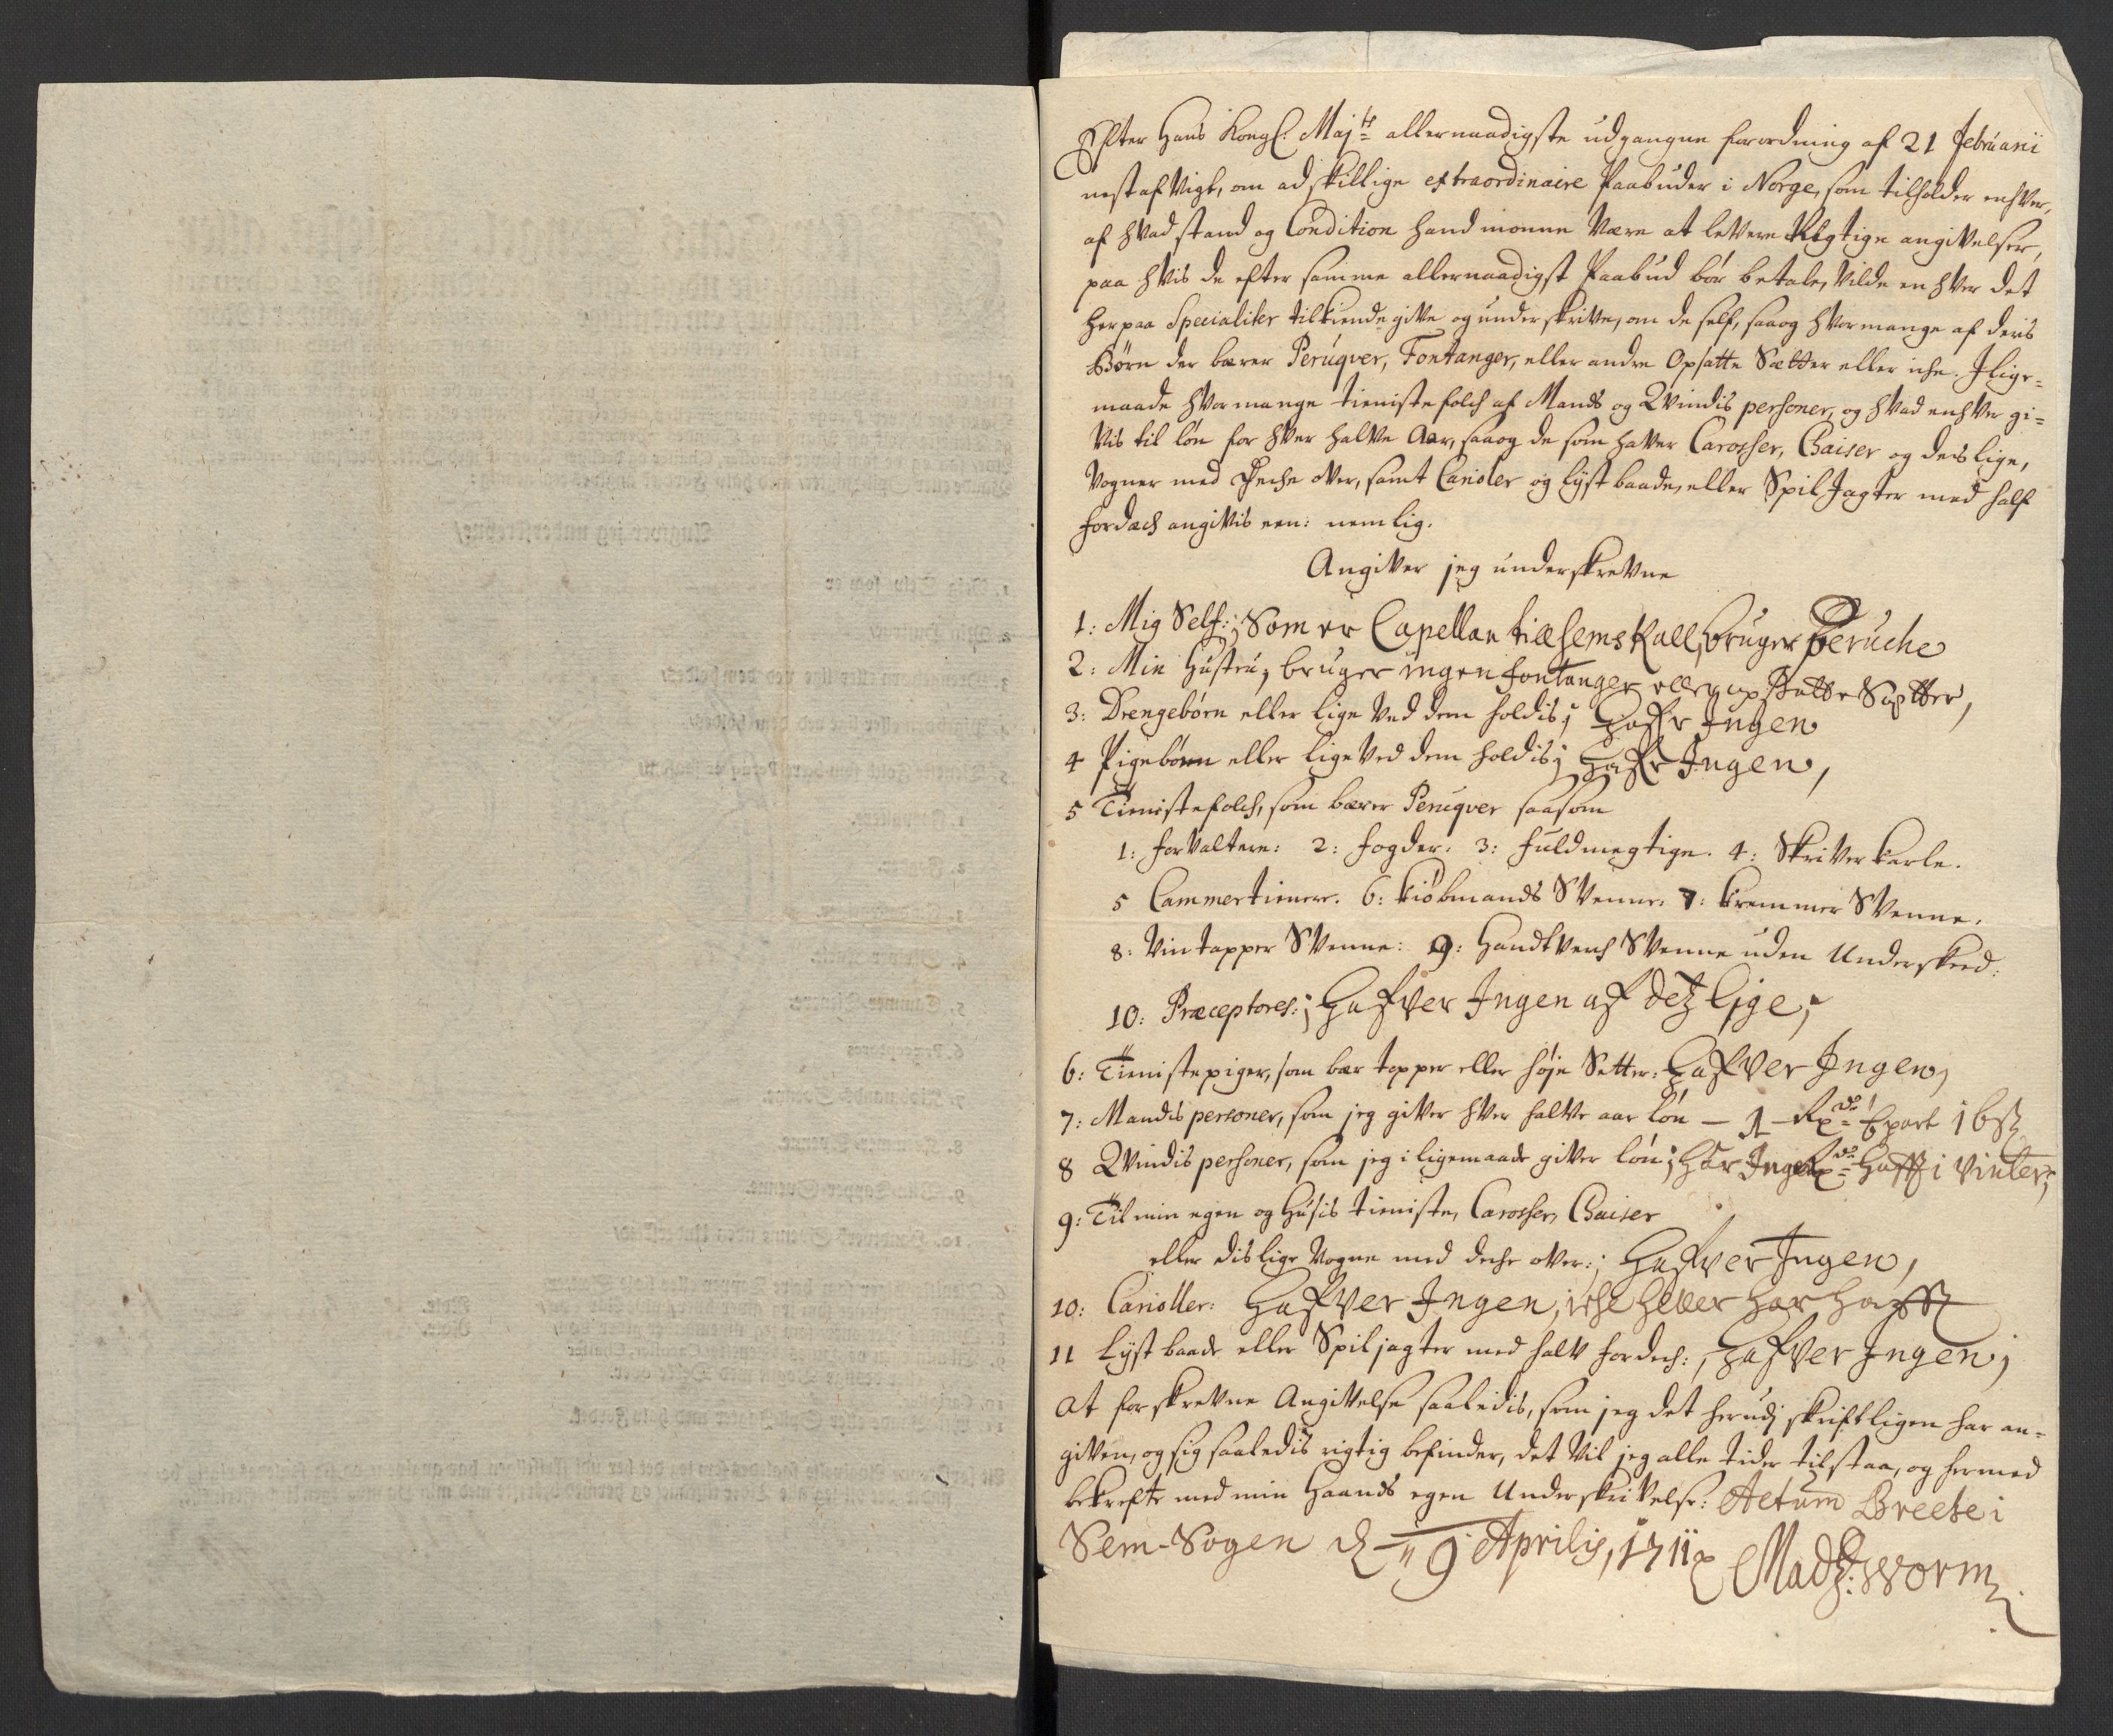 Efter Hans Kongl: Majts allernaadigste udgangne forordning af 21 Februarii
nest afvigt, om adskillige extraordinaire Paabuder i Norge, som tilholder enhver,
af hvad stand og Condition hand monne være at levere Rigtige angivelser,
paa hvis de efter samme allernaadigst Paabud bør betale, vilde enhver det
herpaa Specialiter tilkiendegive og underskrive, om de self, saa og hvor mange af deris
Børn der bærer Peruqver, Fontanger, eller andre Opsatte Sætter eller iche. Jlige=
maade hvor mange tieniste folch af Mands og Qvindis personer, og hvad enhver gi=
vis til løn for hver halve Aar, saa og de som haver Carosser, Chaiser og deslige,
Vogner med Deche over, samt Carioler og lyst baade, eller Spil Jagter med half
fordæch angivis een: nemlig.
Angiver jeg underskrevne
1: Mig Self:; Som er Capellan till Sems Kall, bruger Peruche
2: Min Hustru; bruger ingen fontanger eller opsatte Sætter,
3: Drengebørn eller lige ved dem holdis; Hafr Ingen
4 Pigebørn eller lige ved dem holdis; Hafr Ingen,
5 Tienistefolch, som bærer Peruqver saasom
1: forvaltere: 2: fogder: 3: fuldmegtige. 4: Skriver karle.
5 Cammertienere. 6: kiøbmands Svenne: 7: kremmer Svenne.
8: Vintapper Svenne: 9: Handtverch Svenne uden Underskeed:
10: Præceptores:; Hafver Ingen af detz lige;
6: Tienistepiger, som bær topper eller høje Setter: Hafver Ingen,
7: Mandis personer, som jeg giver hver halve aar løn — 1 – Rxdr Epart 16ß
8 Qvindis personer, som jeg i ligemaade giver løn; Har Ingen haft i Vinter;
9: Til min egen og Husis tieniste, Carosser, Chaiser
eller dislige Vogne med deche over:; Hafver Ingen,
10: Carioller: Hafver Ingen, iche heller har hafft
11 Lyst baade eller Spiljagter med halv fordech:, Hafver Ingen;
At forskrevne Angivelse saaledis, som jeg det herudj skriftligen har an=
given, og sig saaledis rigtig befinder, det vil jeg alle tider tilstaa, og hermed
bekrefte med min Haands egen Underskrivelse: Actum Breche i
Sem-Sogen d 9 Aprilis, 1711 Madz: Worm